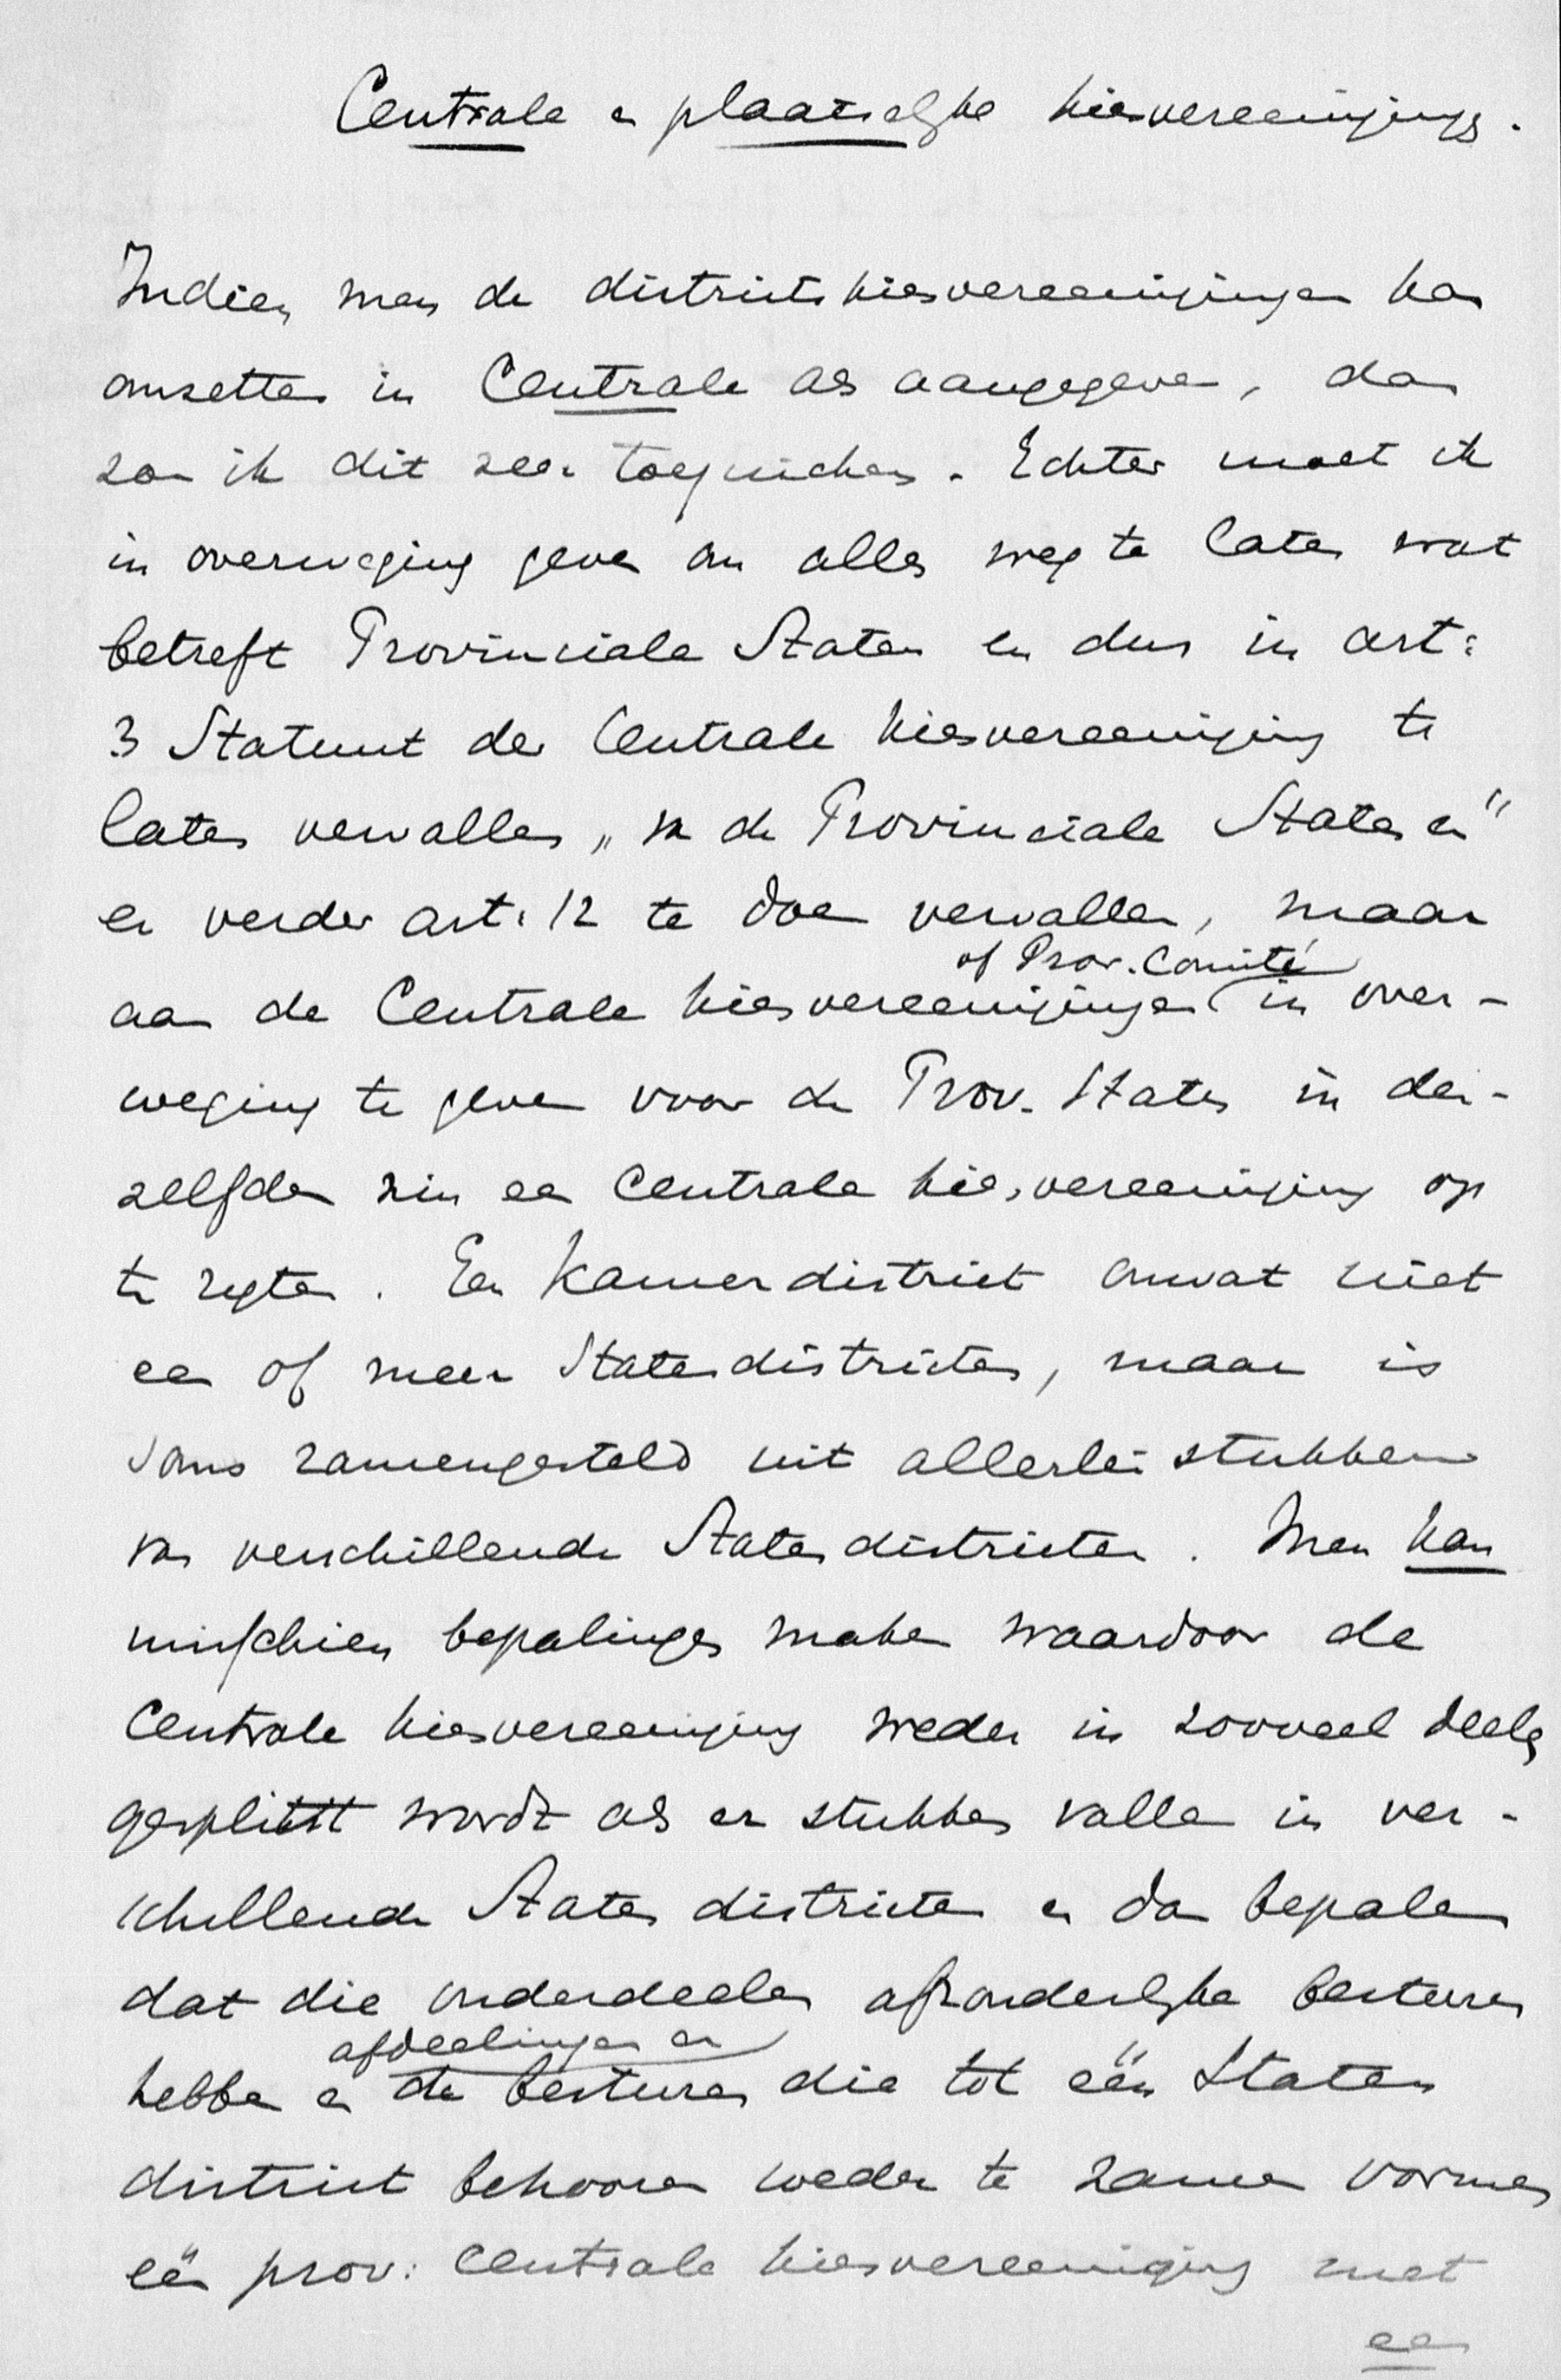 Centrale en plaatselyke kiesvereenigingen.
Indien men de districtskiesvereenigingen kan
omzetten in Centrale als aangegeven, dan
zou ik dit zeer toejuichen. Echter moet ik
in overweging geven om alles weg te laten wat
betreft Provinciale Staten en dus in art:
3 Statuut der Centrale kiesvereeniging te
laten vervallen „van de Provinciale Staten en"
en verder art: 12 te doen vervallen, maar
of Prov. Comité
aan de Centrale kiesvereenigingen in over-
weging te geven voor de Prov. Staten in den-
zelfden zin een Centrale kiesvereeniging op
te regten. Een Kamerdistrict omvat niet
een of meer Statendistricten, maar is
soms zamengesteld uit allerlei stukken
van verschillende Statendistricten. Men kan
misschien bepalingen maken waardoor de
Centrale kiesvereeniging weder in zooveel deelen
gesplitst wordt als er stukken vallen in ver-
schillende Staten districten en dan bepalen
dat die onderdeelen afzonderlyke besturen
afdeelingen en
hebben en de besturen die tot één Staten
district behooren weder te zamen vormen
één prov: Centrale kiesvereeniging met
een